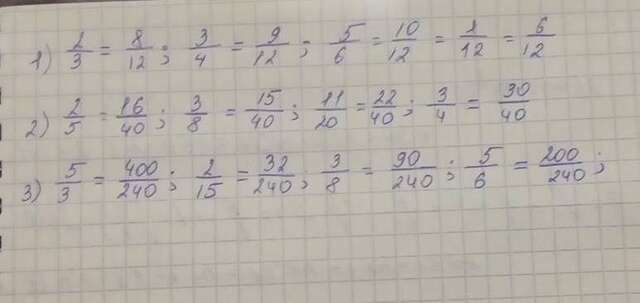 1) 2/3 = 8/12; 3/4 = 9/12; 5/6 = 10/12 = 1/12 = 6/12
2) 2/5 = 16/40; 3/8 = 15/40; 11/20 = 22/40; 3/4 = 30/40
3) 5/3 = 400/240; 2/15 = 32/240; 3/8 = 90/240; 5/6 = 200/240;